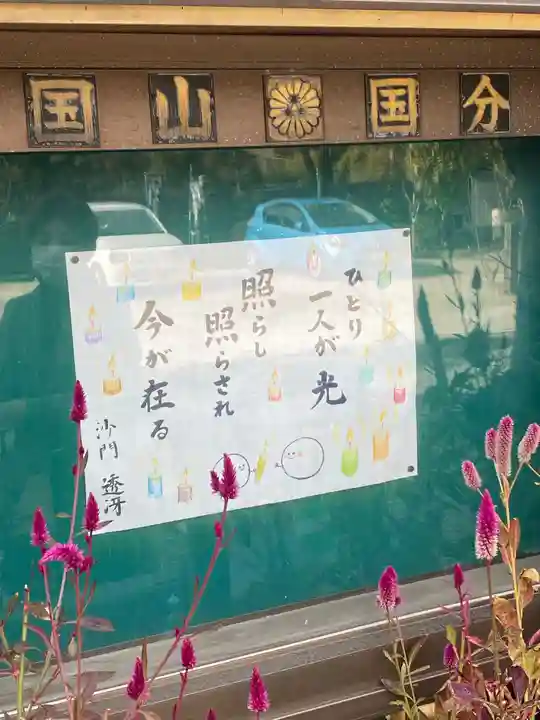 国山国分
ひとり
一人が光
照らし
照らされ
今が在る
沙門 透冴